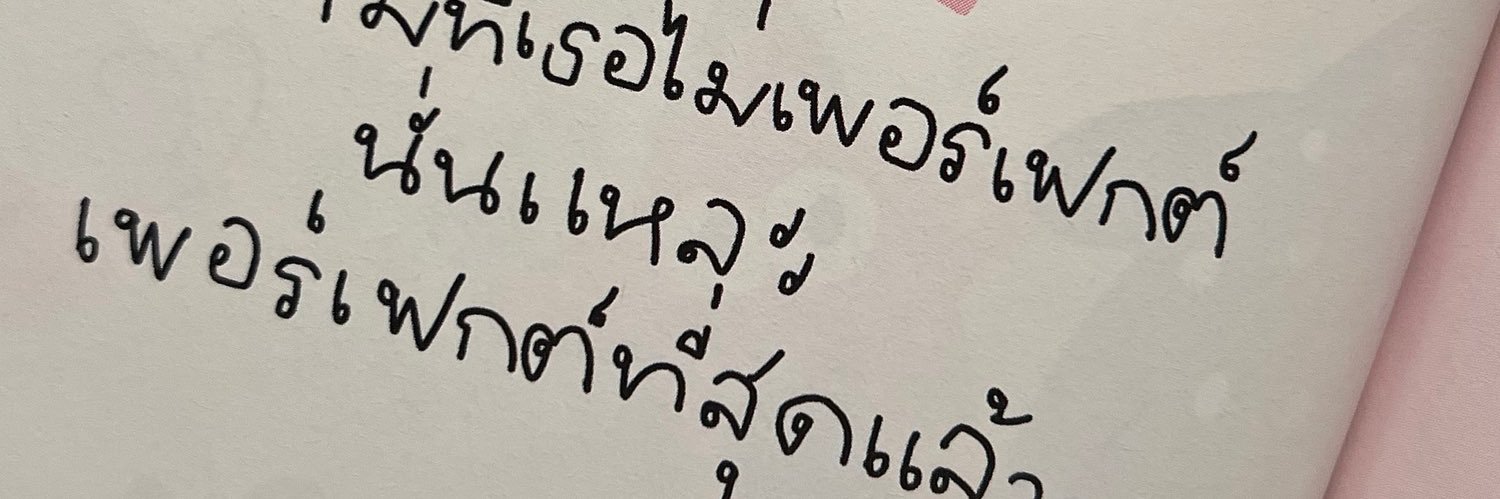 ที่เธอไม่เพอร์เฟกต์
นั่นแหละ
เพอร์เฟกต์ที่สุดแล้ว